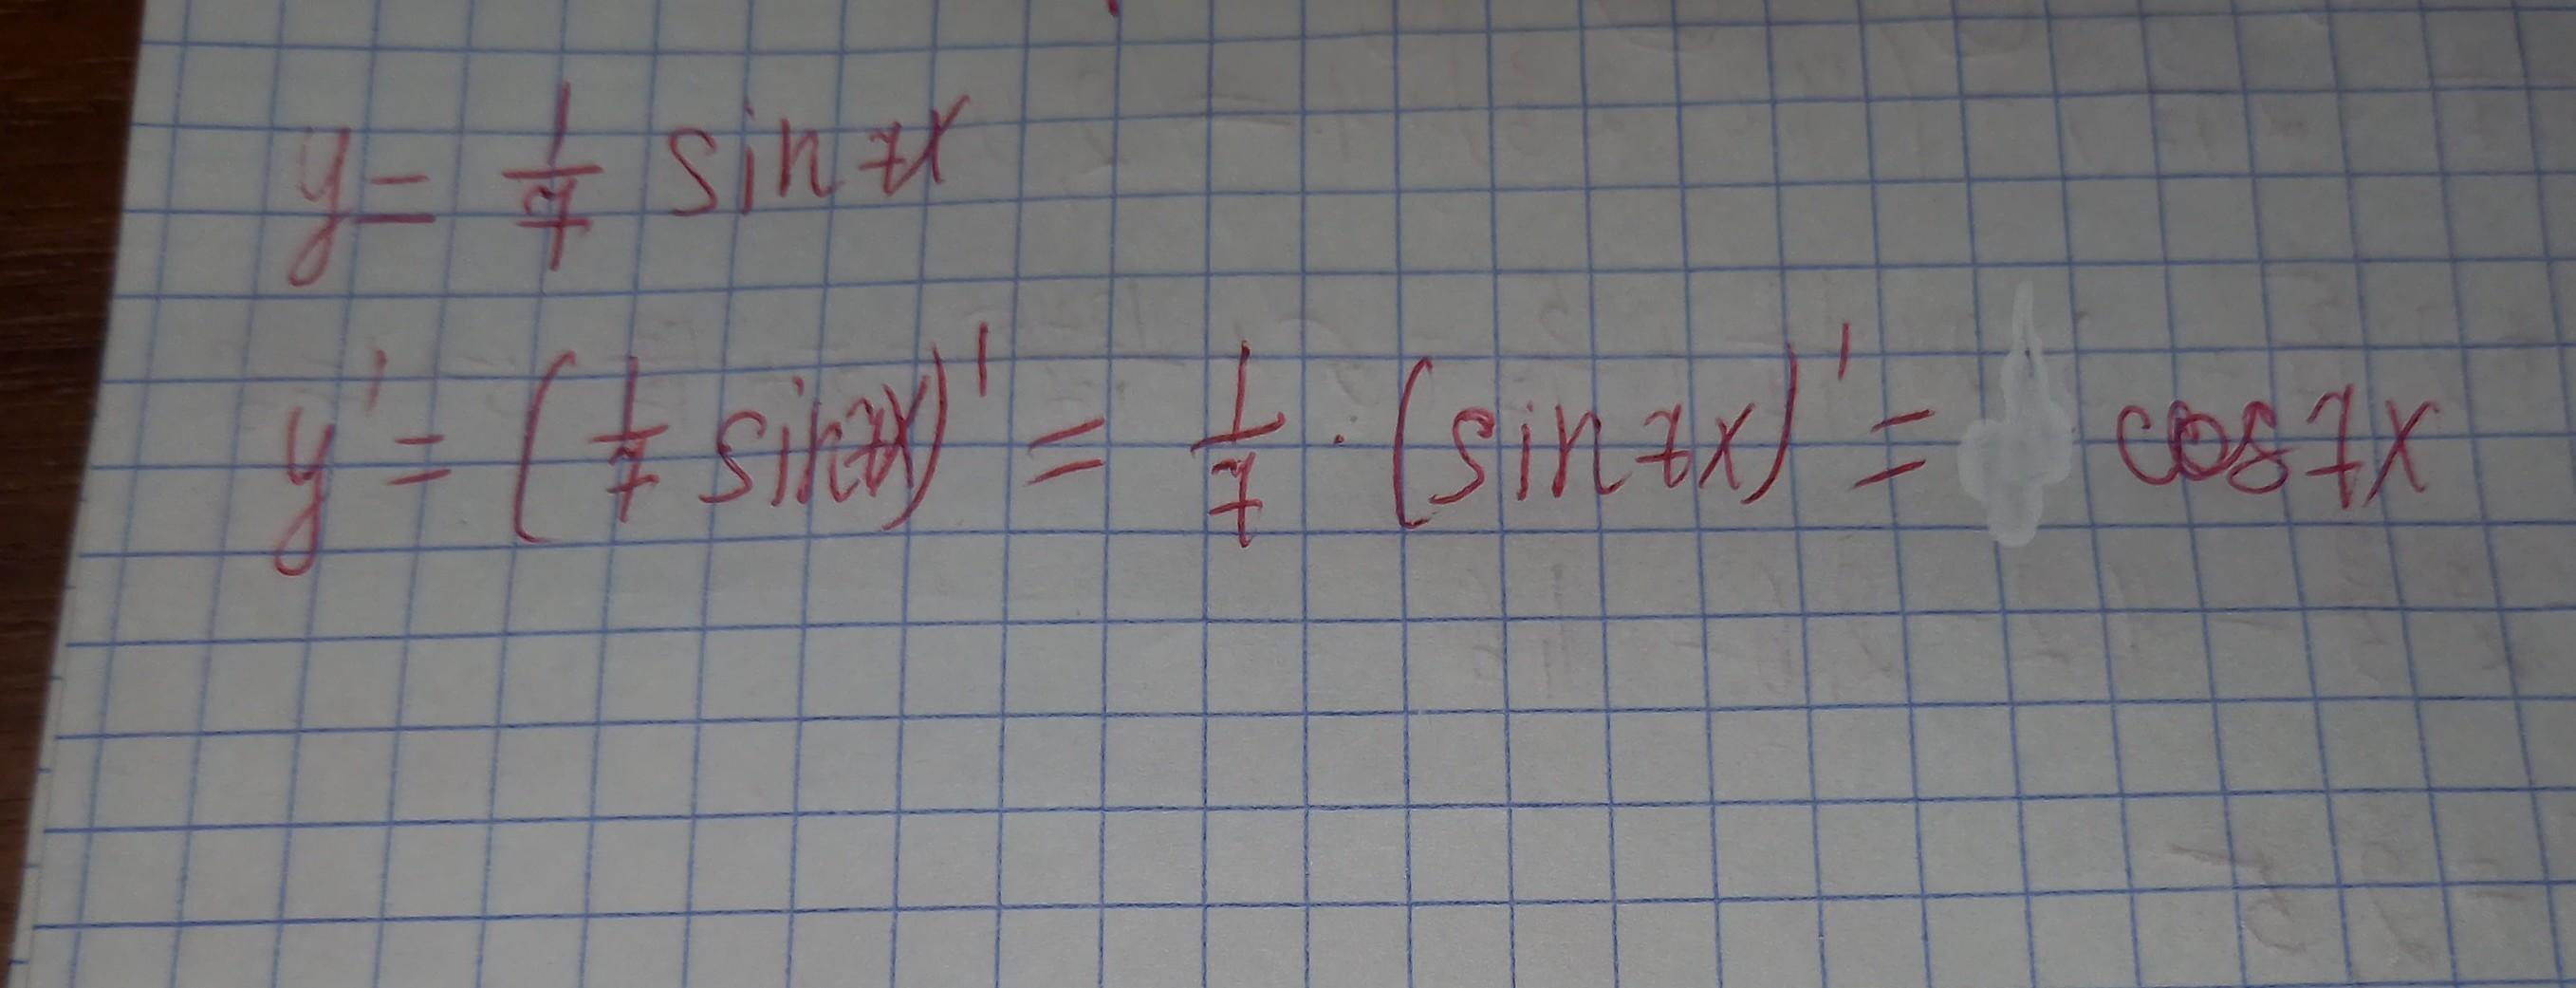 y = 1/7 sin 7x
y' = (1/7 sin 7x)' = 1/7 · (sin 7x)' = cos 7x